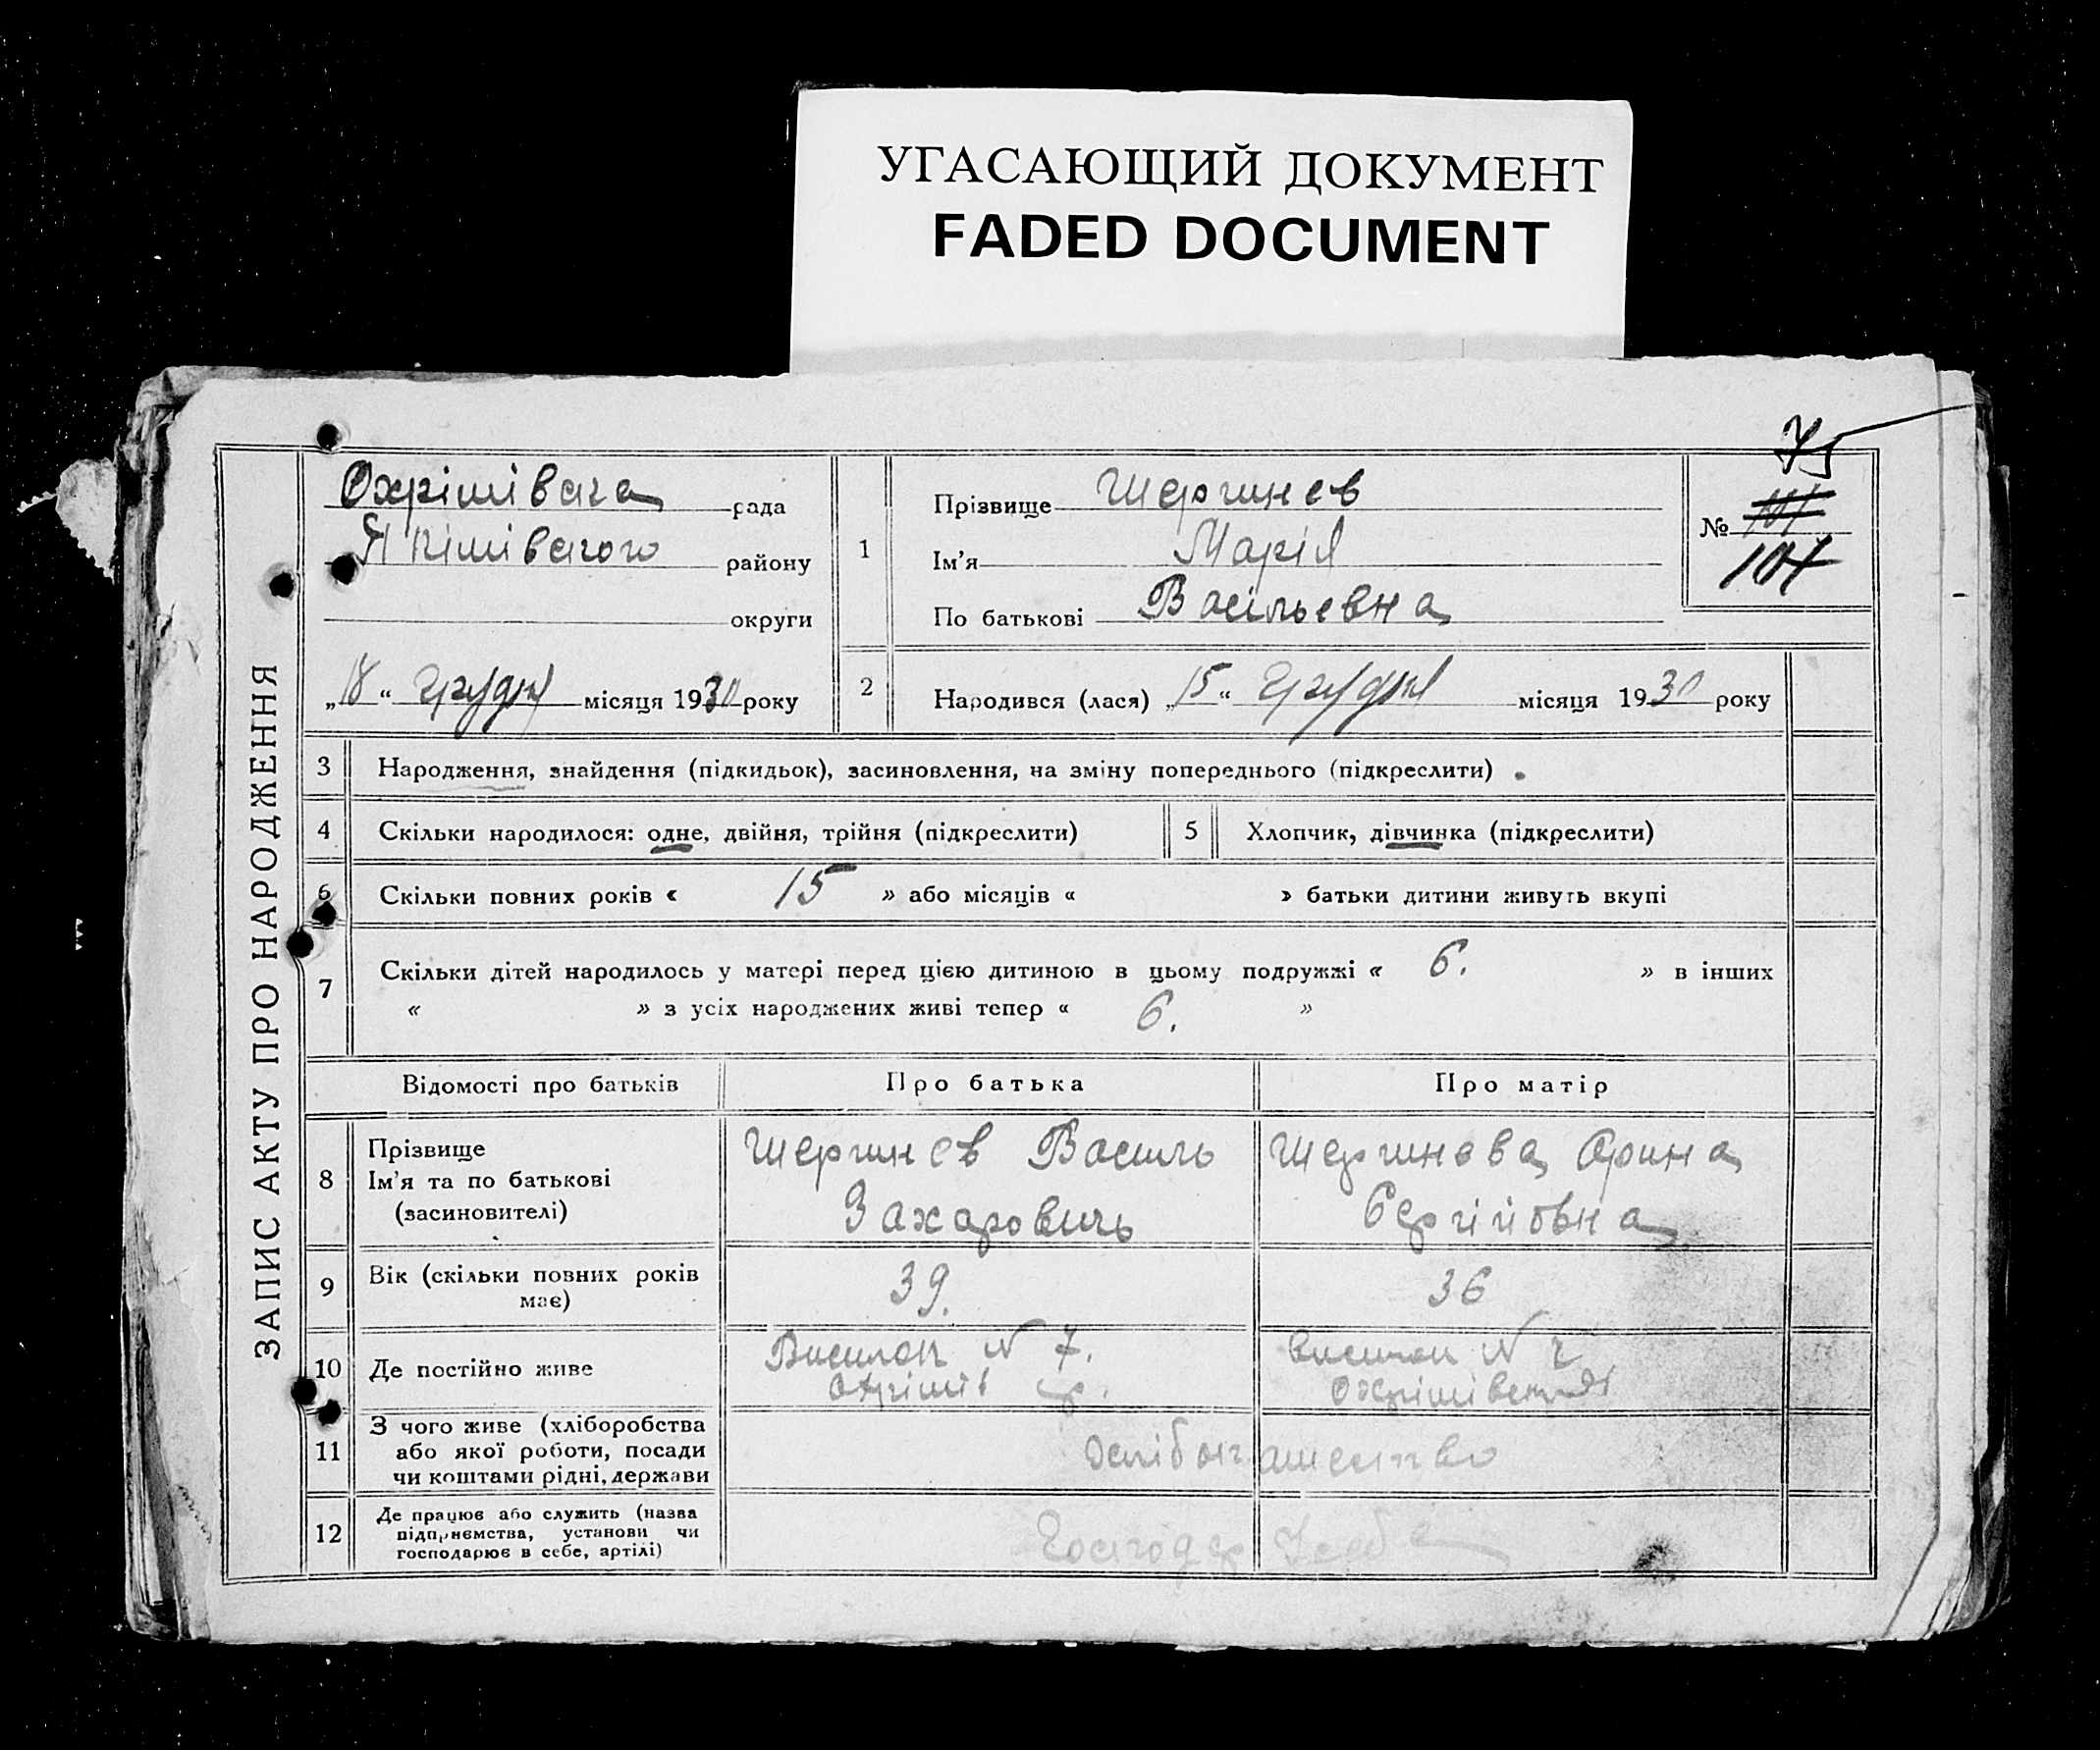 УГАСАЮЩИЙ ДОКУМЕНТ
FADED DOCUMENT
ЗАПИС АКТУ ПРО НАРОДЖЕННЯ
Охрімівска рада
Якімівского району
округи
„18“ грудня місяця 1930 року
1
Прізвище
Ім'я Марія
По батькові Васільевна
75
№ 104
104
2 Народився (лася) „15“ грудня місяця 1930 року
3 Народження, знайдення (підкидьок), засиновлення, на зміну попереднього (підкреслити)
4 Скільки народилося: одне, двійня, трійня (підкреслити) 5 Хлопчик, дівчинка (підкреслити)
6 Скільки повних років « 15 » або місяців « » батьки дитини живуть вкупі
7 Скільки дітей народилось у матері перед цією дитиною в цьому подружжі « 6. » в інших
« » з усіх народжених живі тепер « 6. »
Відомості про батьків Про батька Про матір
8 Прізвище
Ім'я та по батькові
(засиновителі)
Василь
Захарович
Орина
Сергійовна
9 Вік (скільки повних років має) 39. 36
10 Де постійно живе
Висилок N 7.
висилок N
11 З чого живе (хліборобства
або якої роботи, посади
чи коштами рідні, держави
12 Де працює або служить (назва
підприємства, установи чи
господарює в себе, артілі)